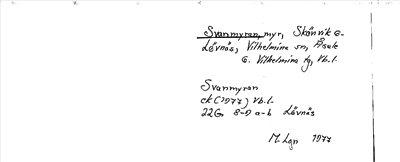 Svanmyran, myr, Skänvik o.
Lövnäs, Vilhelmina sn, Åsele
o. Vilhelmina tg, Vb.l.
Svanmyran
ek (1977) Vb.l.
22G 8-9 a-b Lövnäs
M. Lgn 1977